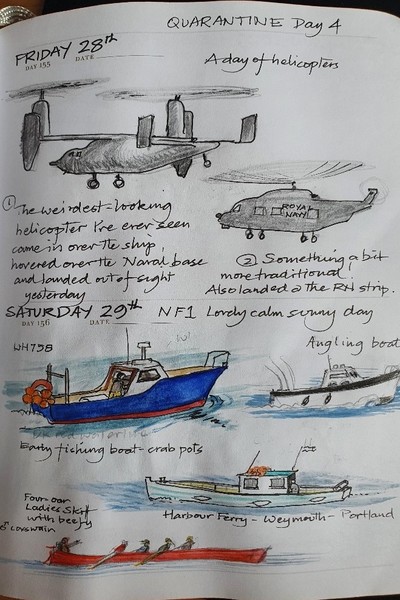 QUARANTINE Day 4
FRIDAY 28th
DAY 155 DATE
A day of helicopters
① The weirdest-looking
helicopter I've ever seen
came in over the ship,
hovered over the Naval base
and landed out of sight
yesterday
ROYAL
NAVY
② Something a bit
more traditional!
Also landed @ the RN strip.
SATURDAY 29th NF1 Lovely calm sunny day
DAY 156 DATE
WH798
Angling boat
Early fishing boat - crab pots
Harbour Ferry - Weymouth - Portland
Four oar
Ladies Skiff
with beefy
♂ coxswain